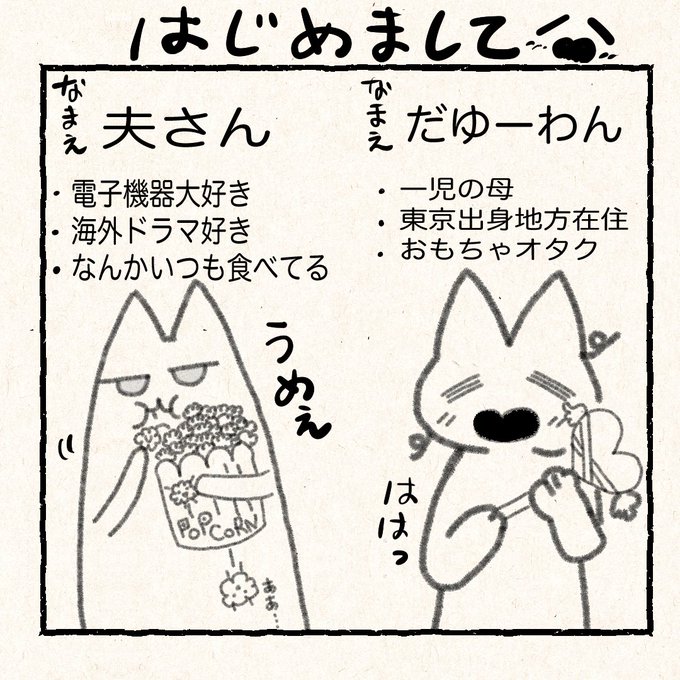 はじめまして
なまえ 夫さん
・電子機器大好き
・海外ドラマ好き
・なんかいつも食べてる
うめぇ
POPCORN
ああ……
なまえ だゆーわん
・一児の母
・東京出身地方在住
・おもちゃオタク
ははっ